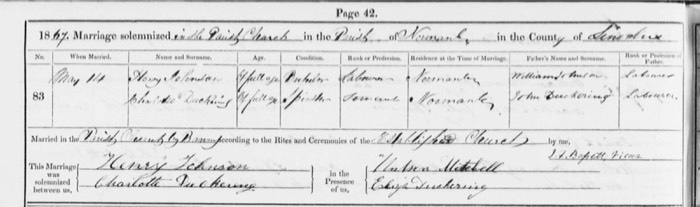 Page 42.
1867. Marriage solemnized in the Parish Church in the Parish of Normanby in the County of Lincoln
No. When Married. Name and Surname. Age. Condition. Rank or Profession. Residence at the Time of Marriage. Father's Name and Surname. Rank or Profession of Father.
83 May 14 Henry Johnson Of full age Bachelor Labourer Normanby William Johnson Labourer
Charlotte Duckering Of full age Spinster Servant Normanby John Duckering Labourer
Married in the Parish Church by Banns according to the Rites and Ceremonies of the Established Church by me,
Vicar
This Marriage was solemnized between us, Henry Johnson in the Presence of us, Mitchell
Charlotte Duckering Eliza Duckering